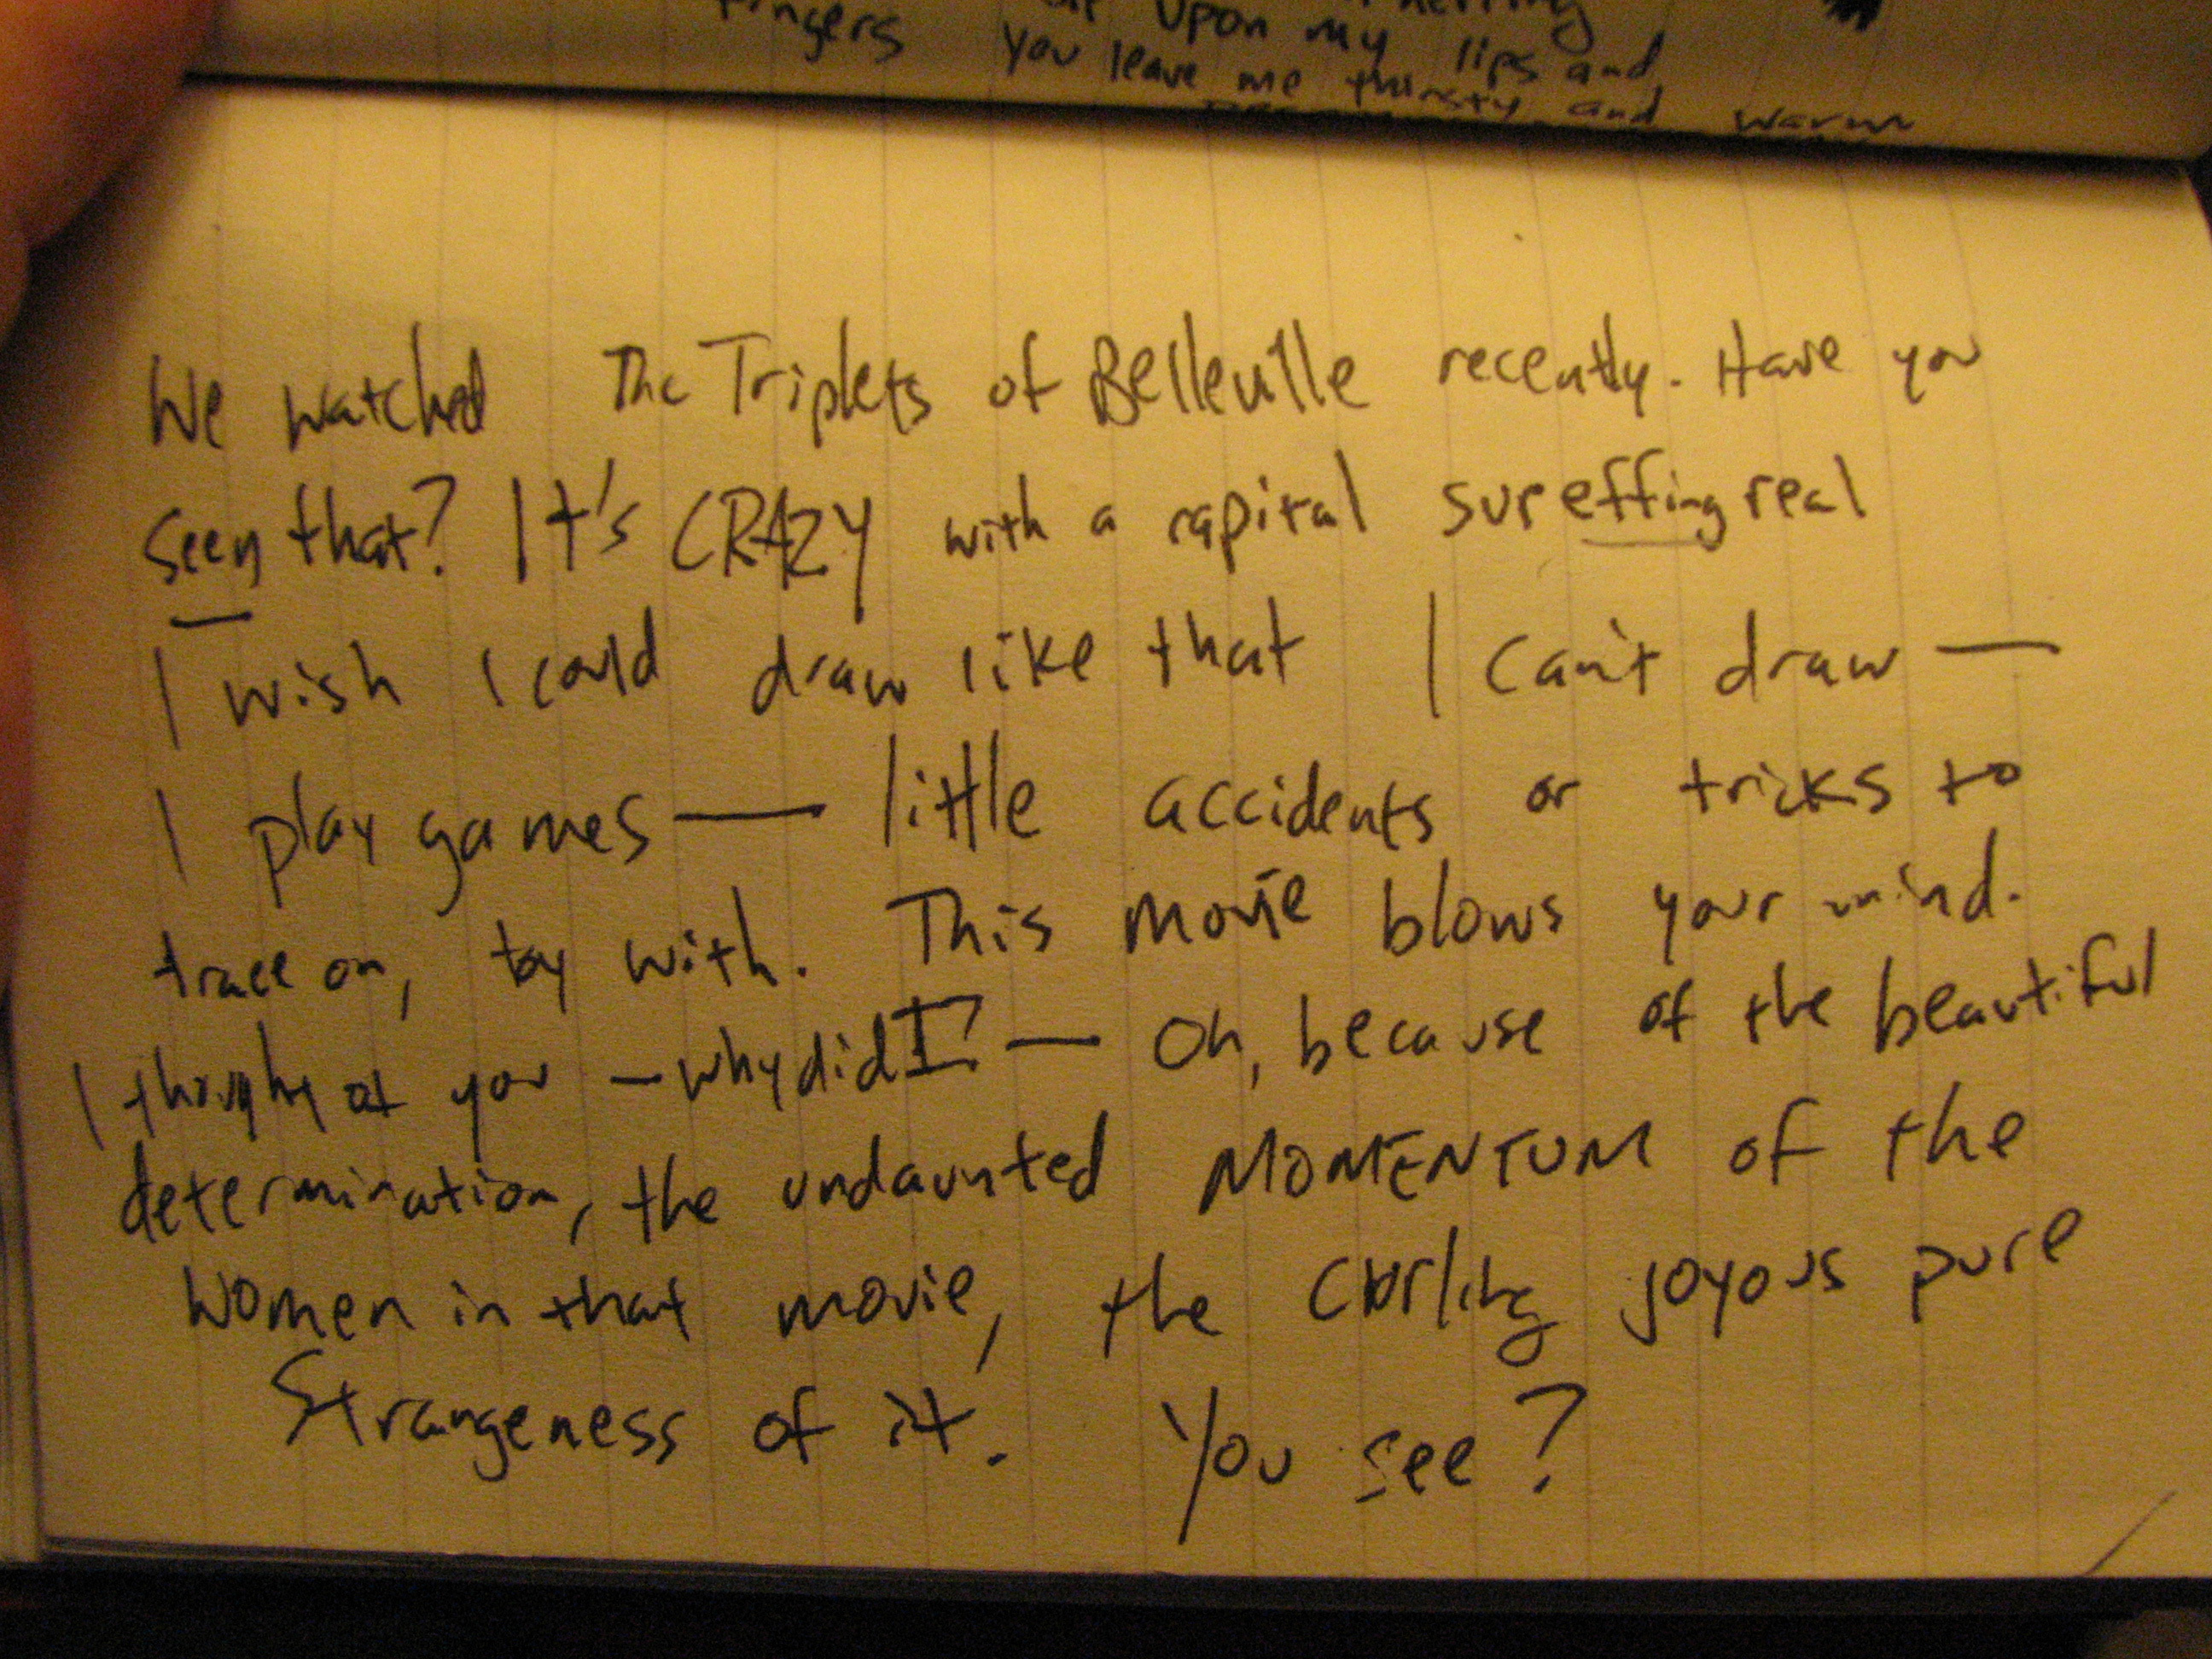 upon my lips and
fingers you leave me thirsty and warm
We watched The Triplets of Belleville recently. Have you
seen that? It's CRAZY with a capital sureffingreal
I wish I could draw like that I can't draw —
I play games — little accidents or tricks to
trace on, toy with. This movie blows your mind.
I thought of you — why did I? — Oh, because of the beautiful
determination, the undaunted MOMENTUM of the
women in that movie, the curling joyous pure
strangeness of it. You see?